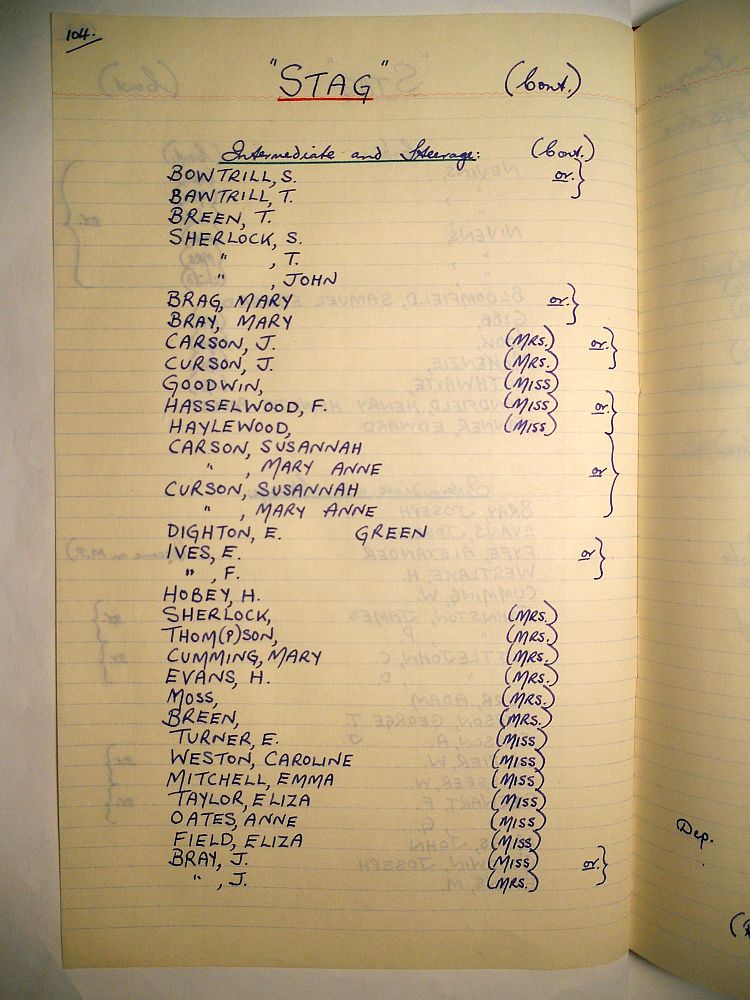 104.
"STAG" (Cont.)
Intermediate and Steerage: (Cont.)
BOWTRILL, S. or.}
BAWTRILL, T.
BREEN, T.
SHERLOCK, S.
" , T.
" , JOHN
BRAG, MARY or.}
BRAY, MARY
CARSON, J. (MRS.) or.}
CURSON, J. (MRS.)
GOODWIN, (MISS)
HASSELWOOD, F. (MISS) or.}
HAYLEWOOD, (MISS)
CARSON, SUSANNAH
" , MARY ANNE or}
CURSON, SUSANNAH
" , MARY ANNE
DIGHTON, E. GREEN
IVES, E. or}
" , F.
HOBEY, H.
SHERLOCK, (MRS.)
THOM(P)SON, (MRS.)
CUMMING, MARY (MRS.)
EVANS, H. (MRS.)
MOSS, (MRS.)
BREEN, (MRS.)
TURNER, E. (MISS)
WESTON, CAROLINE (MISS)
MITCHELL, EMMA (MISS)
TAYLOR, ELIZA (MISS)
OATES, ANNE (MISS)
FIELD, ELIZA (MISS)
BRAY, J. (MISS) or.}
" , J. (MRS.)
Dep.